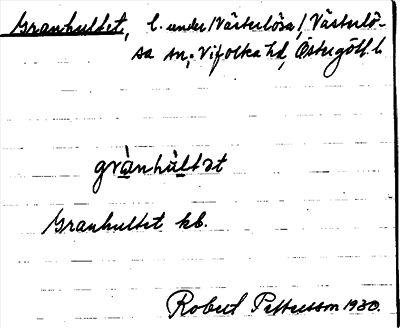 Granhultet, l. under/Västerlösa/Västerlö-
sa sn, Vifolka hd, Östergötl. l.
grànhùltət
Granhultet kb.
Robert Pettersson 1930.